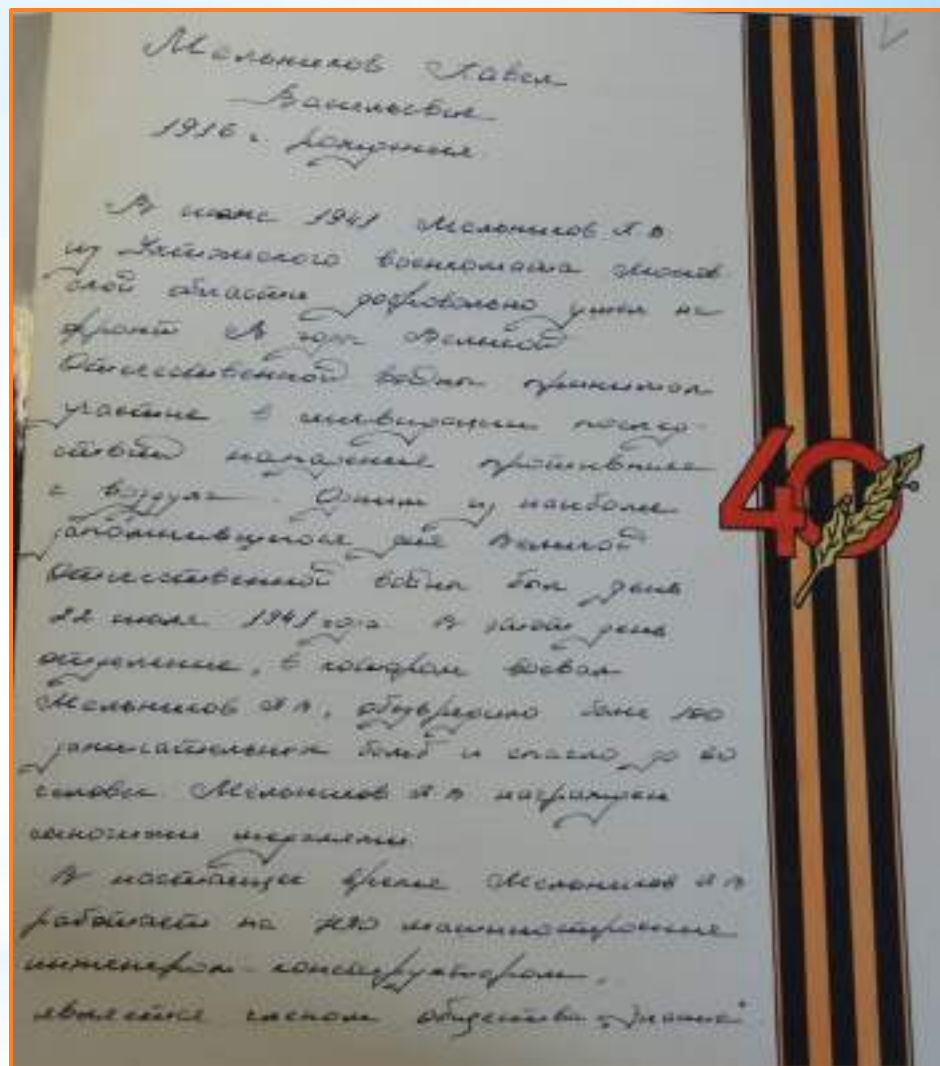 Мельников Павел
Васильевич
1916 г. рождения
В июне 1941 Мельников П В
из Ухтомского военкомата Москов
ской области добровольно ушел на
фронт В годы Великой
Отечественной войны принимал
участие в ликвидации послед-
ствий нападения противника
с воздуха. Одним из наиболее
запомнившихся дней Великой
Отечественной войны был день
22 июля 1941 года В этот день
отделение, в котором воевал
Мельников П В, обезвредило более 100
зажигательных бомб и спасло до 20
человек. Мельников П В награжден
многими медалями
В настоящее время Мельников П В
работает на НПО машиностроения
инженером-конструктором,
является членом общества "Знание"
40